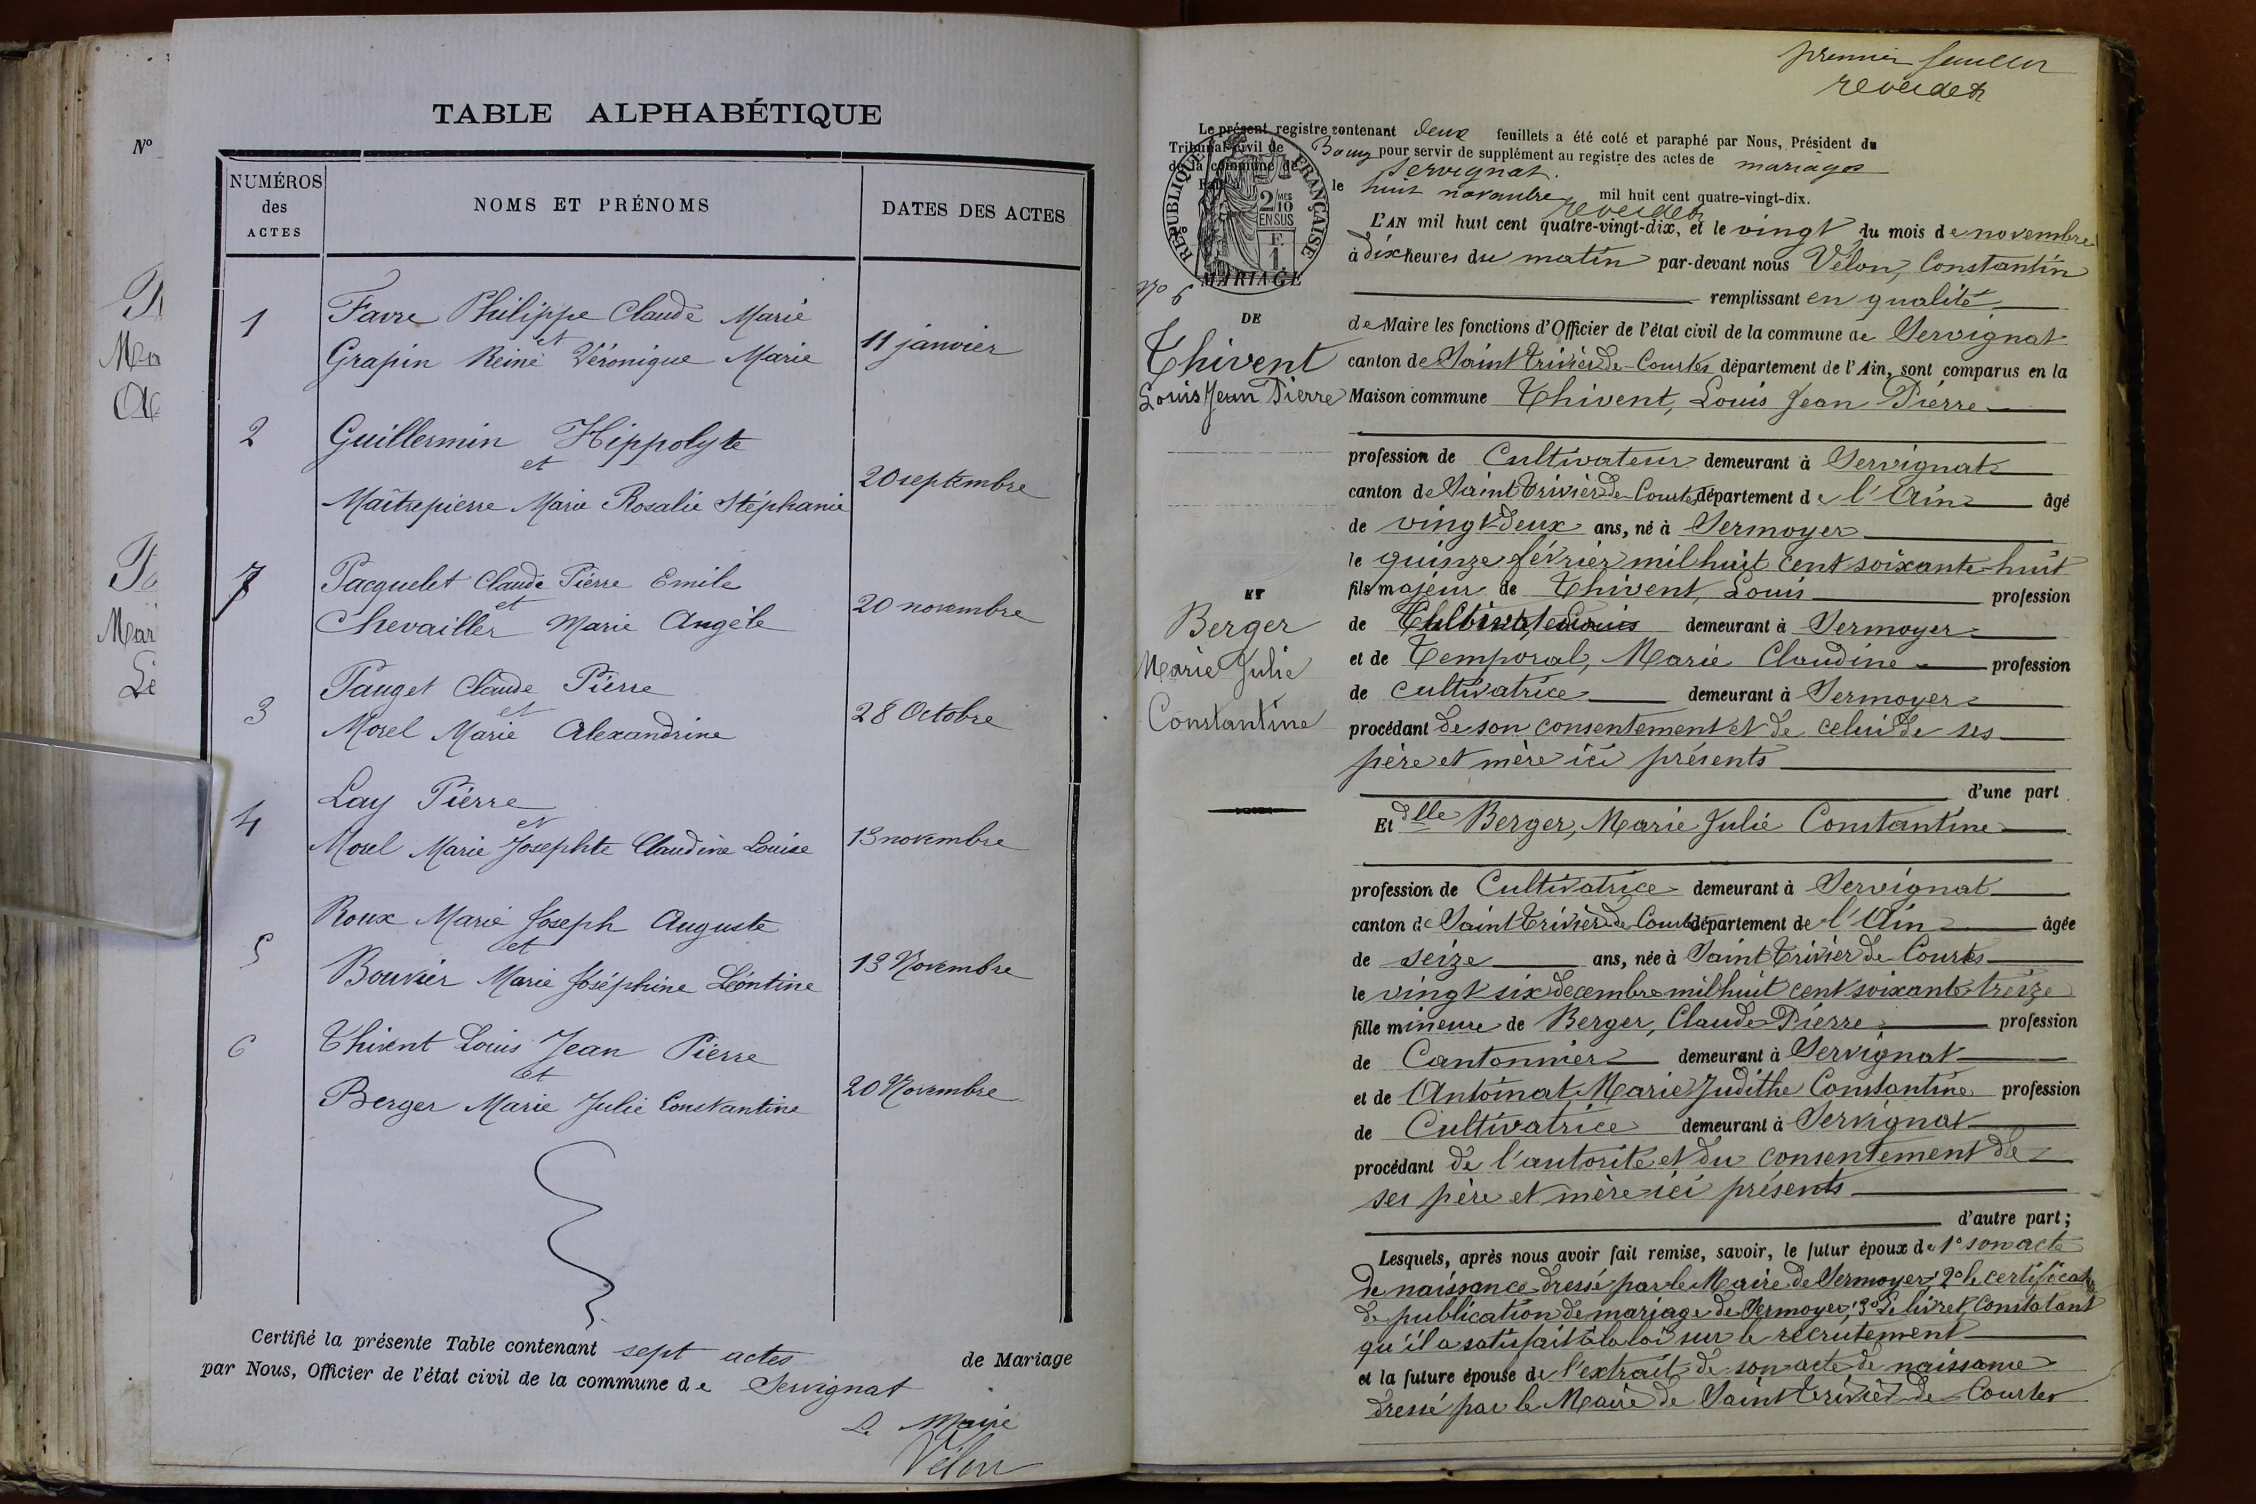 TABLE ALPHABÉTIQUE
Nº
NUMÉROS
des
ACTES
NOMS ET PRÉNOMS
DATES DES ACTES
1
Favre Philippe Claude Marie
et
Grapin Reine Véronique Marie
11 janvier
2
Guillermin Hippolyte
et
Maîtrepierre Marie Rosalie Stéphanie
20 septembre
7
Pacquelet Claude Pierre Emile
et
Chevailler Marie Angèle
20 novembre
3
Pauget Claude Pierre
et
Morel Marie Alexandrine
28 Octobre
4
Lay Pierre
et
Morel Marie Josephte Claudine Louise
13 novembre
5
Roux Marie Joseph Auguste
et
Bouvier Marie Joséphine Léontine
13 Novembre
6
Thivent Louis Jean Pierre
et
Berger Marie Julie Constantine
20 Novembre
Certifié la présente Table contenant sept actes de Mariage
par Nous, Officier de l'état civil de la commune de Servignat
Le Maire
Vélon
premier
Le présent registre contenant deux feuillets a été coté et paraphé par Nous, Président du
Tribunal civil de Bourg pour servir de supplément au registre des actes de mariages
de la commune de Servignat.
le huit novembre mil huit cent quatre-vingt-dix.
RÉPUBLIQUE FRANÇAISE
2/10 MES
EN SUS
F.
1.
MARIAGE
No 6
DE
Thivent
Louis Jean Pierre
ET
Berger
Marie Julie
Constantine
L'AN mil huit cent quatre-vingt-dix, et le vingt du mois de novembre
à dix heures du matin par-devant nous Vélon, Constantin
remplissant en qualité
de Maire les fonctions d'Officier de l'état civil de la commune de Servignat
canton de Saint Trivier de Courtes département de l'Ain, sont comparus en la
Maison commune Thivent, Louis Jean Pierre
profession de Cultivateur demeurant à Servignat
canton de Saint Trivier de Courtes département de l'Ain âgé
de vingt-deux ans, né à Sermoyer
le quinze février mil huit cent soixante-huit
fils majeur de Thivent, Louis profession
de Cultivateur demeurant à Sermoyer
et de Temporal, Marie Claudine profession
de cultivatrice demeurant à Sermoyer
procédant de son consentement et de celui de ses
père et mère ici présents
d'une part
Et dlle Berger, Marie Julie Constantine
profession de Cultivatrice demeurant à Servignat
canton de Saint Trivier de Courtes département de l'Ain âgée
de seize ans, née à Saint Trivier de Courtes
le vingt-six décembre mil huit cent soixante-treize
fille mineure de Berger, Claude Pierre profession
de Cantonnier demeurant à Servignat
et de Antoinat Marie Judithe Constantine profession
de Cultivatrice demeurant à Servignat
procédant de l'autorité et du consentement de
ses père et mère ici présents
d'autre part;
Lesquels, après nous avoir fait remise, savoir, le futur époux de 1º son acte
de naissance dressé par le Maire de Sermoyer; 2º le certificat
de publication de mariage de Sermoyer; 3º le livret constatant
qu'il a satisfait à la loi sur le recrutement
et la future épouse de l'extrait de son acte de naissance
dressé par le Maire de Saint Trivier de Courtes